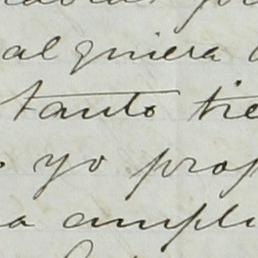 alquiera
tanto tie
yo prop
a ampli